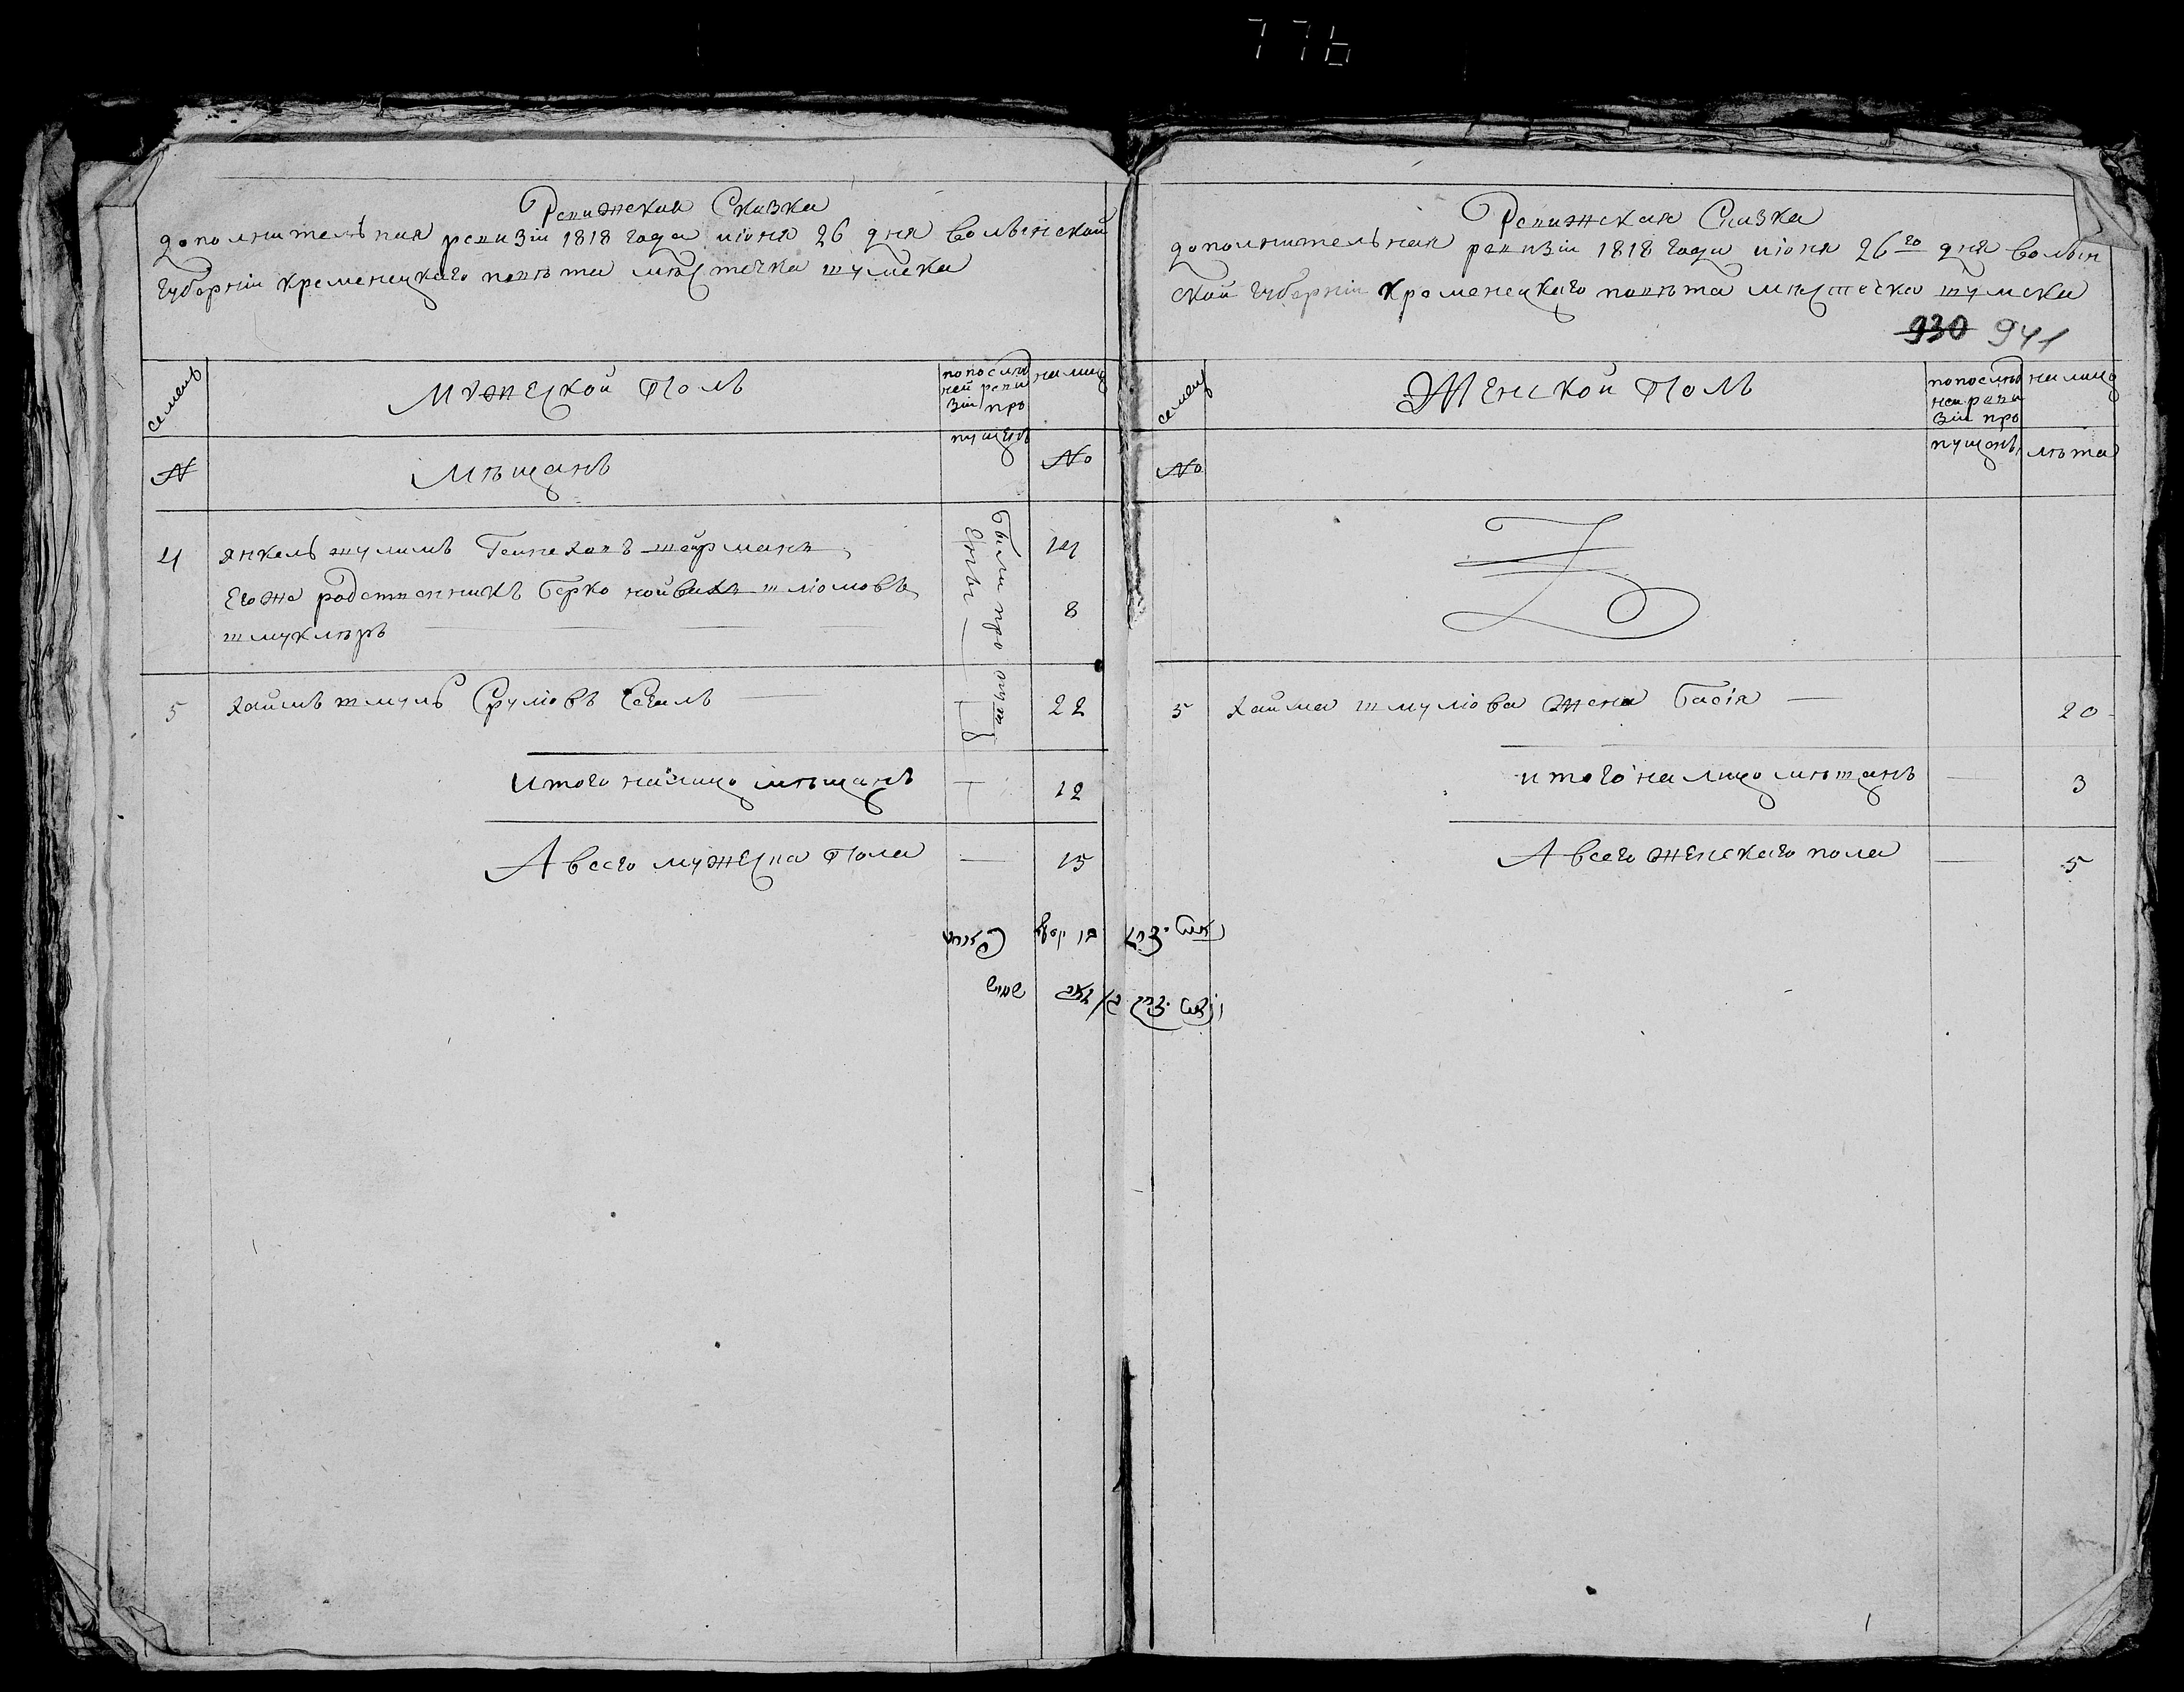 776
Ревижская Сказка
дополнительная ревизіи 1818 года июня 26 дня волынской
губерніи кременецкаго повѣта мѣстечка шумска
семей
мужеской Полъ
по послѣд
ней реви
зіи про
пущенъ
на лицо
№
мѣщанъ
№
4
янкель шулимъ
14
Его же родственникъ Берко шліомовъ
8
шмуклѣръ
Были про пуще
Ены
5
хаимъ шмуль Сруліовъ Сегаль
22
Итого на лицо мѣщанъ
12
А всего мужеска Пола
15
Ревижская Сказка
дополнительная ревизіи 1818 года июня 26го дня волын
ской губерніи кременецкаго повѣта мѣстечка шумска
930 941
семей
Женской Полъ
по послѣд
ней реви
зіи про
пущенъ
на лицо
№
лѣта
5
хаима шмуліова жена Басія
20
итого на лицо мѣщанъ
3
А всего женскаго пола
5